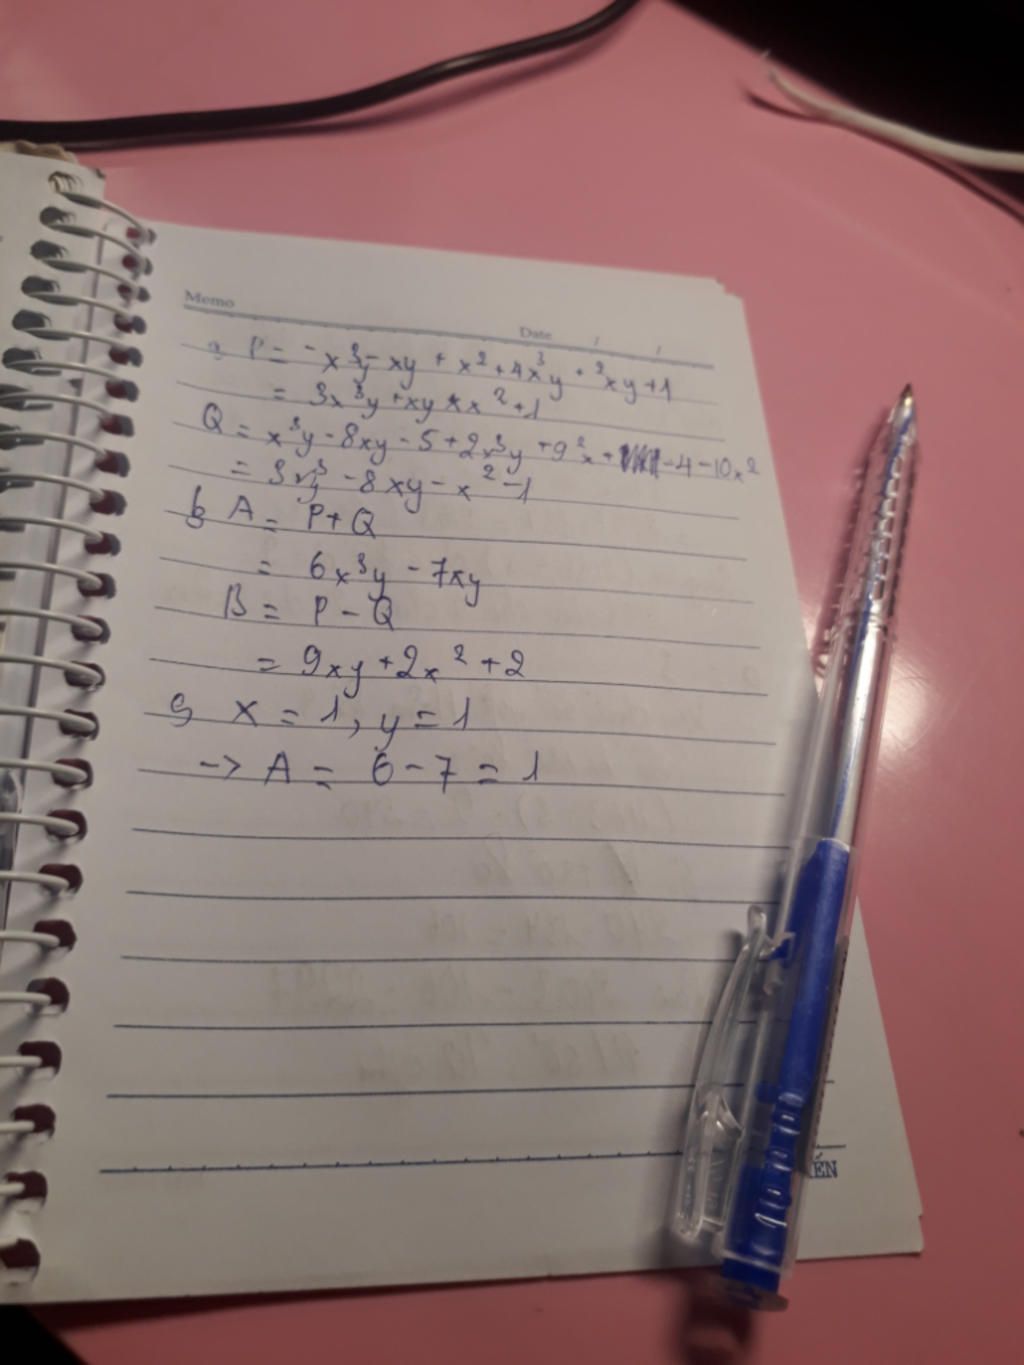 Memo
Date / /
a, P = -x³y - xy + x² + 4x³y + 2xy + 1
= 3x³y + xy + x² + 1
Q = x³y - 8xy - 5 + 2x³y + 9x² + - 4 - 10x²
= 3x³y - 8xy - x² - 1
b, A = P + Q
= 6x³y - 7xy
B = P - Q
= 9xy + 2x² + 2
c, x = 1, y = 1
-> A = 6 - 7 = 1